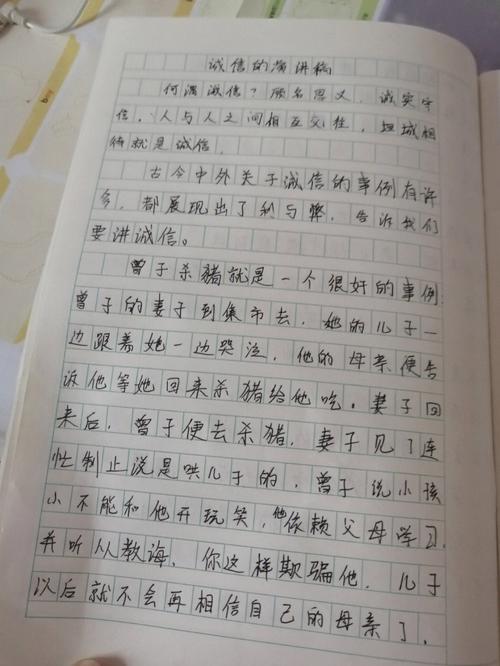 诚信的演讲稿
何谓诚信?顾名思义,诚实守
信,人与人之间相互交往,坦诚相
待就是诚信。
古今中外关于诚信的事例有许
多,都展现出了利与弊,告诉我们
要讲诚信。
曾子杀猪就是一个很好的事例
曾子的妻子到集市去,她的儿子一
边跟着她一边哭泣,他的母亲便告
诉他等她回来杀猪给他吃。妻子回
来后,曾子便去杀猪,妻子见了连
忙制止说是哄儿子的,曾子说小孩
小不能和他开玩笑,他依赖父母学习
并听从教诲,你这样欺骗他,儿子
以后就不会再相信自己的母亲了,